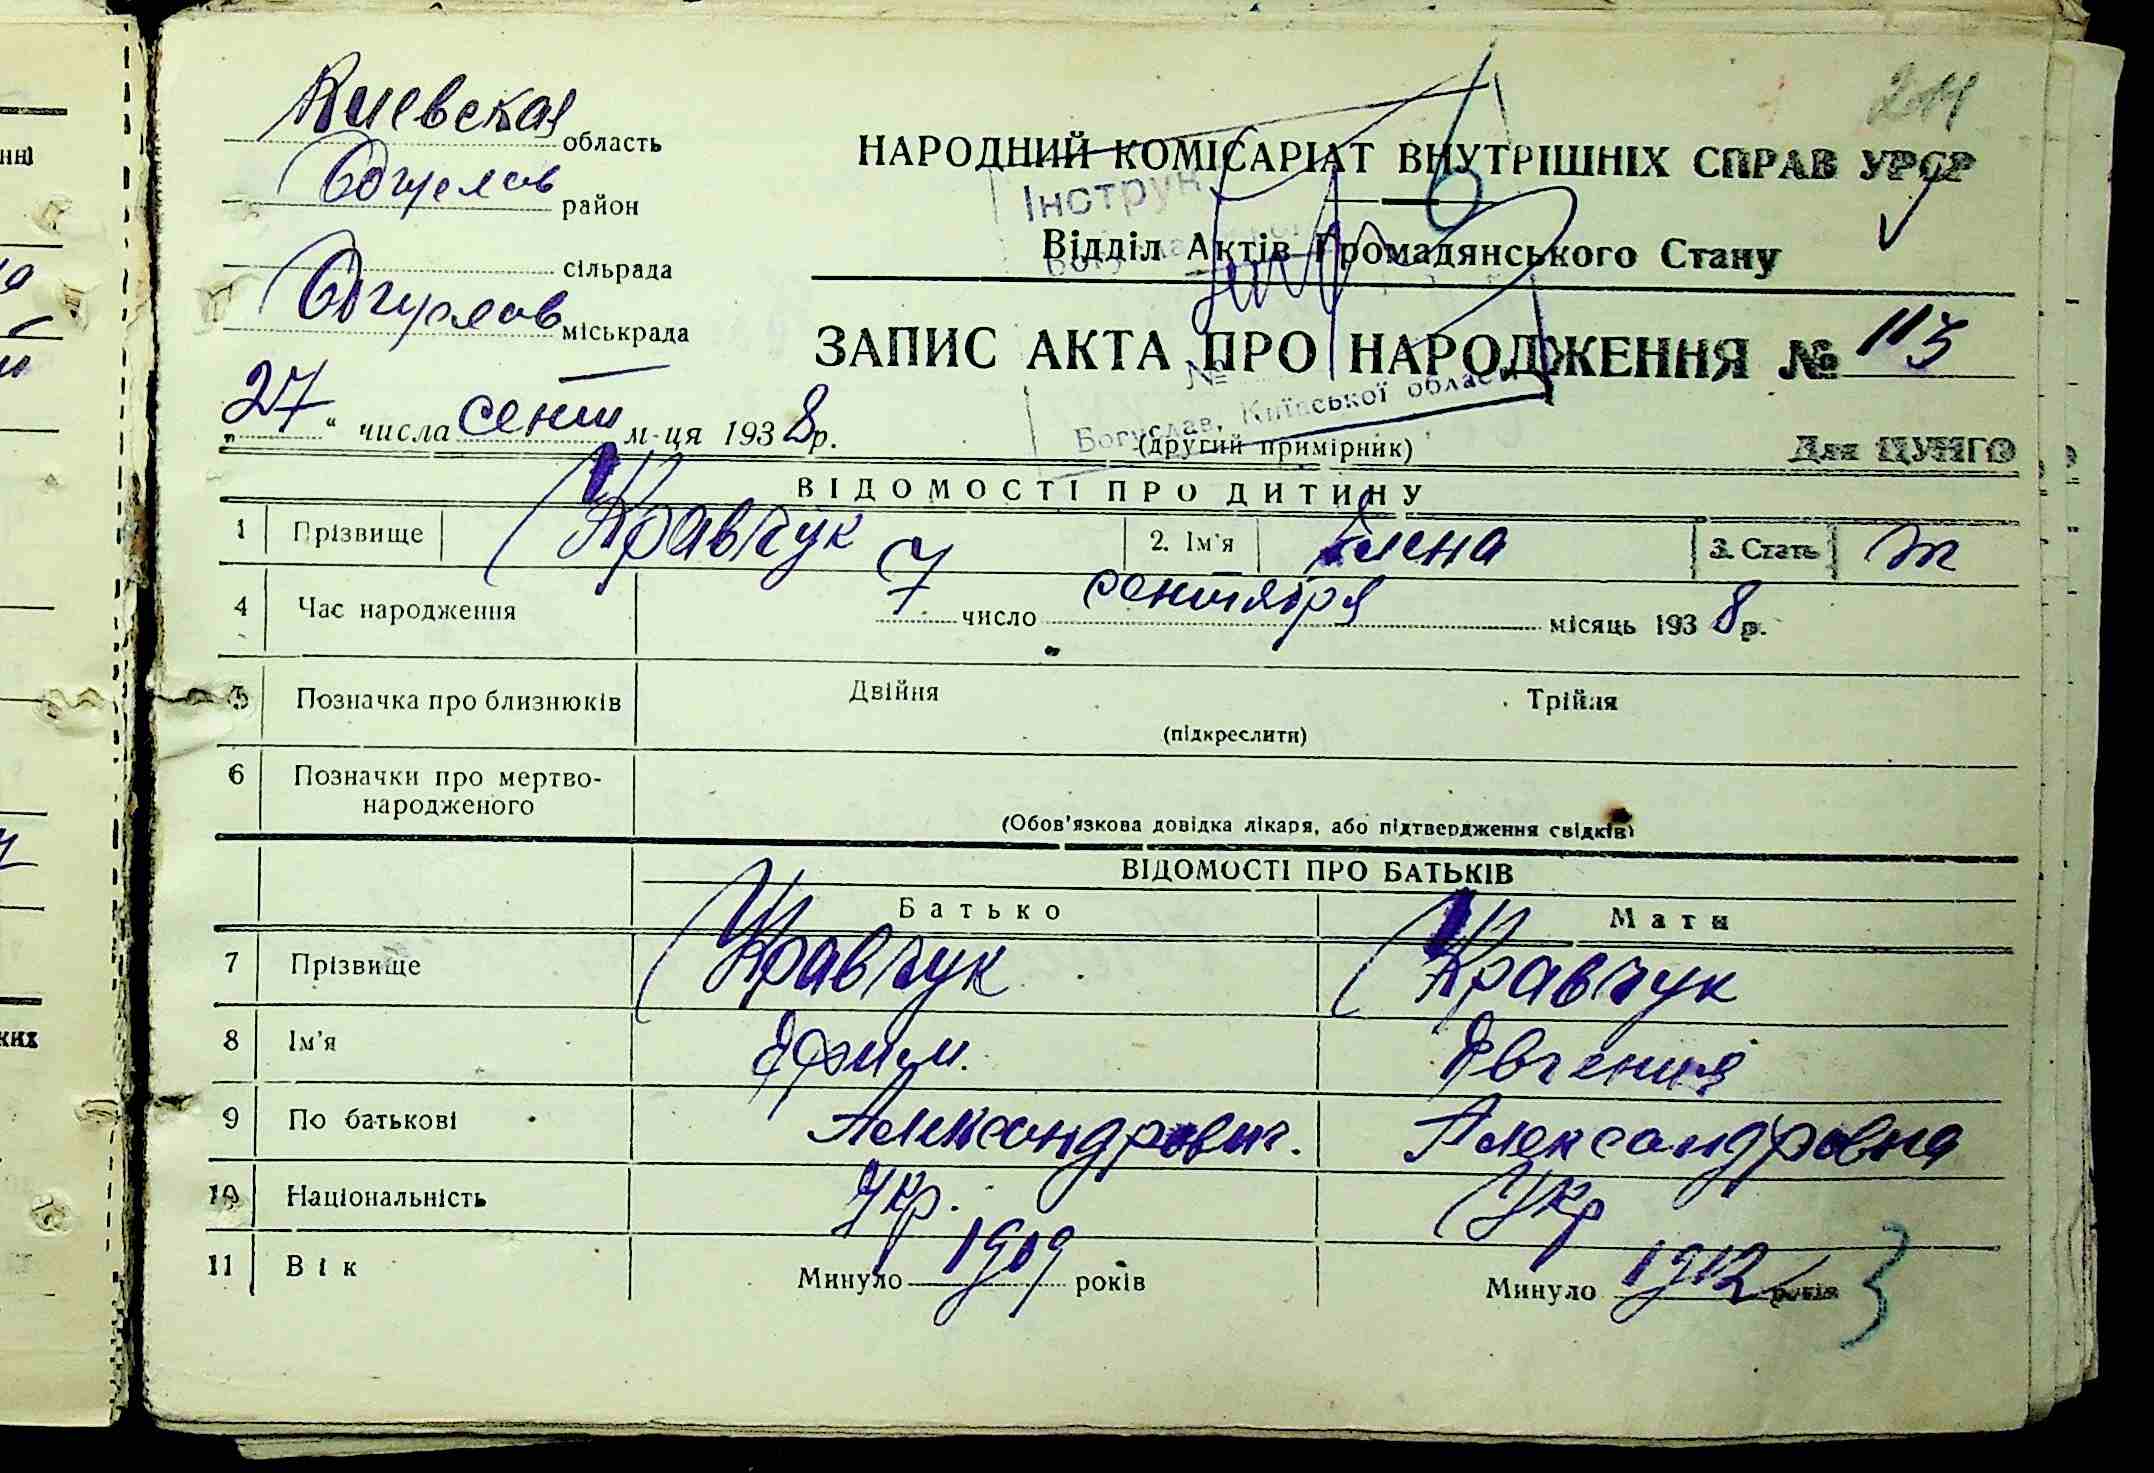 Киевская область
Богуслав район
сільрада
Богуслав міськрада
„27“ числа сент м-ця 1938р.
201
НАРОДНИЙ КОМІСАРІАТ ВНУТРІШНІХ СПРАВ УРСР
Відділ Актів Громадянського Стану
ЗАПИС АКТА ПРО НАРОДЖЕННЯ № 113
Богуслав, Київської області
(другий примірник)
Для ЦУНГО
ВІДОМОСТІ ПРО ДИТИНУ
1 Прізвище Кравчук 2. Ім'я Елена 3. Стать ж
4 Час народження 7 число сентября місяць 1938р.
5 Позначка про близнюків Двійня Трійня
(підкреслити)
6 Позначки про мертво-
народженого
(Обов'язкова довідка лікаря, або підтвердження свідків)
ВІДОМОСТІ ПРО БАТЬКІВ
Батько Мати
7 Прізвище Кравчук Кравчук
8 Ім'я Ефим. Евгения
9 По батькові Александрович. Александровна
10 Національність Укр. Укр
11 Вік Минуло 1909 років Минуло 1912 років 3